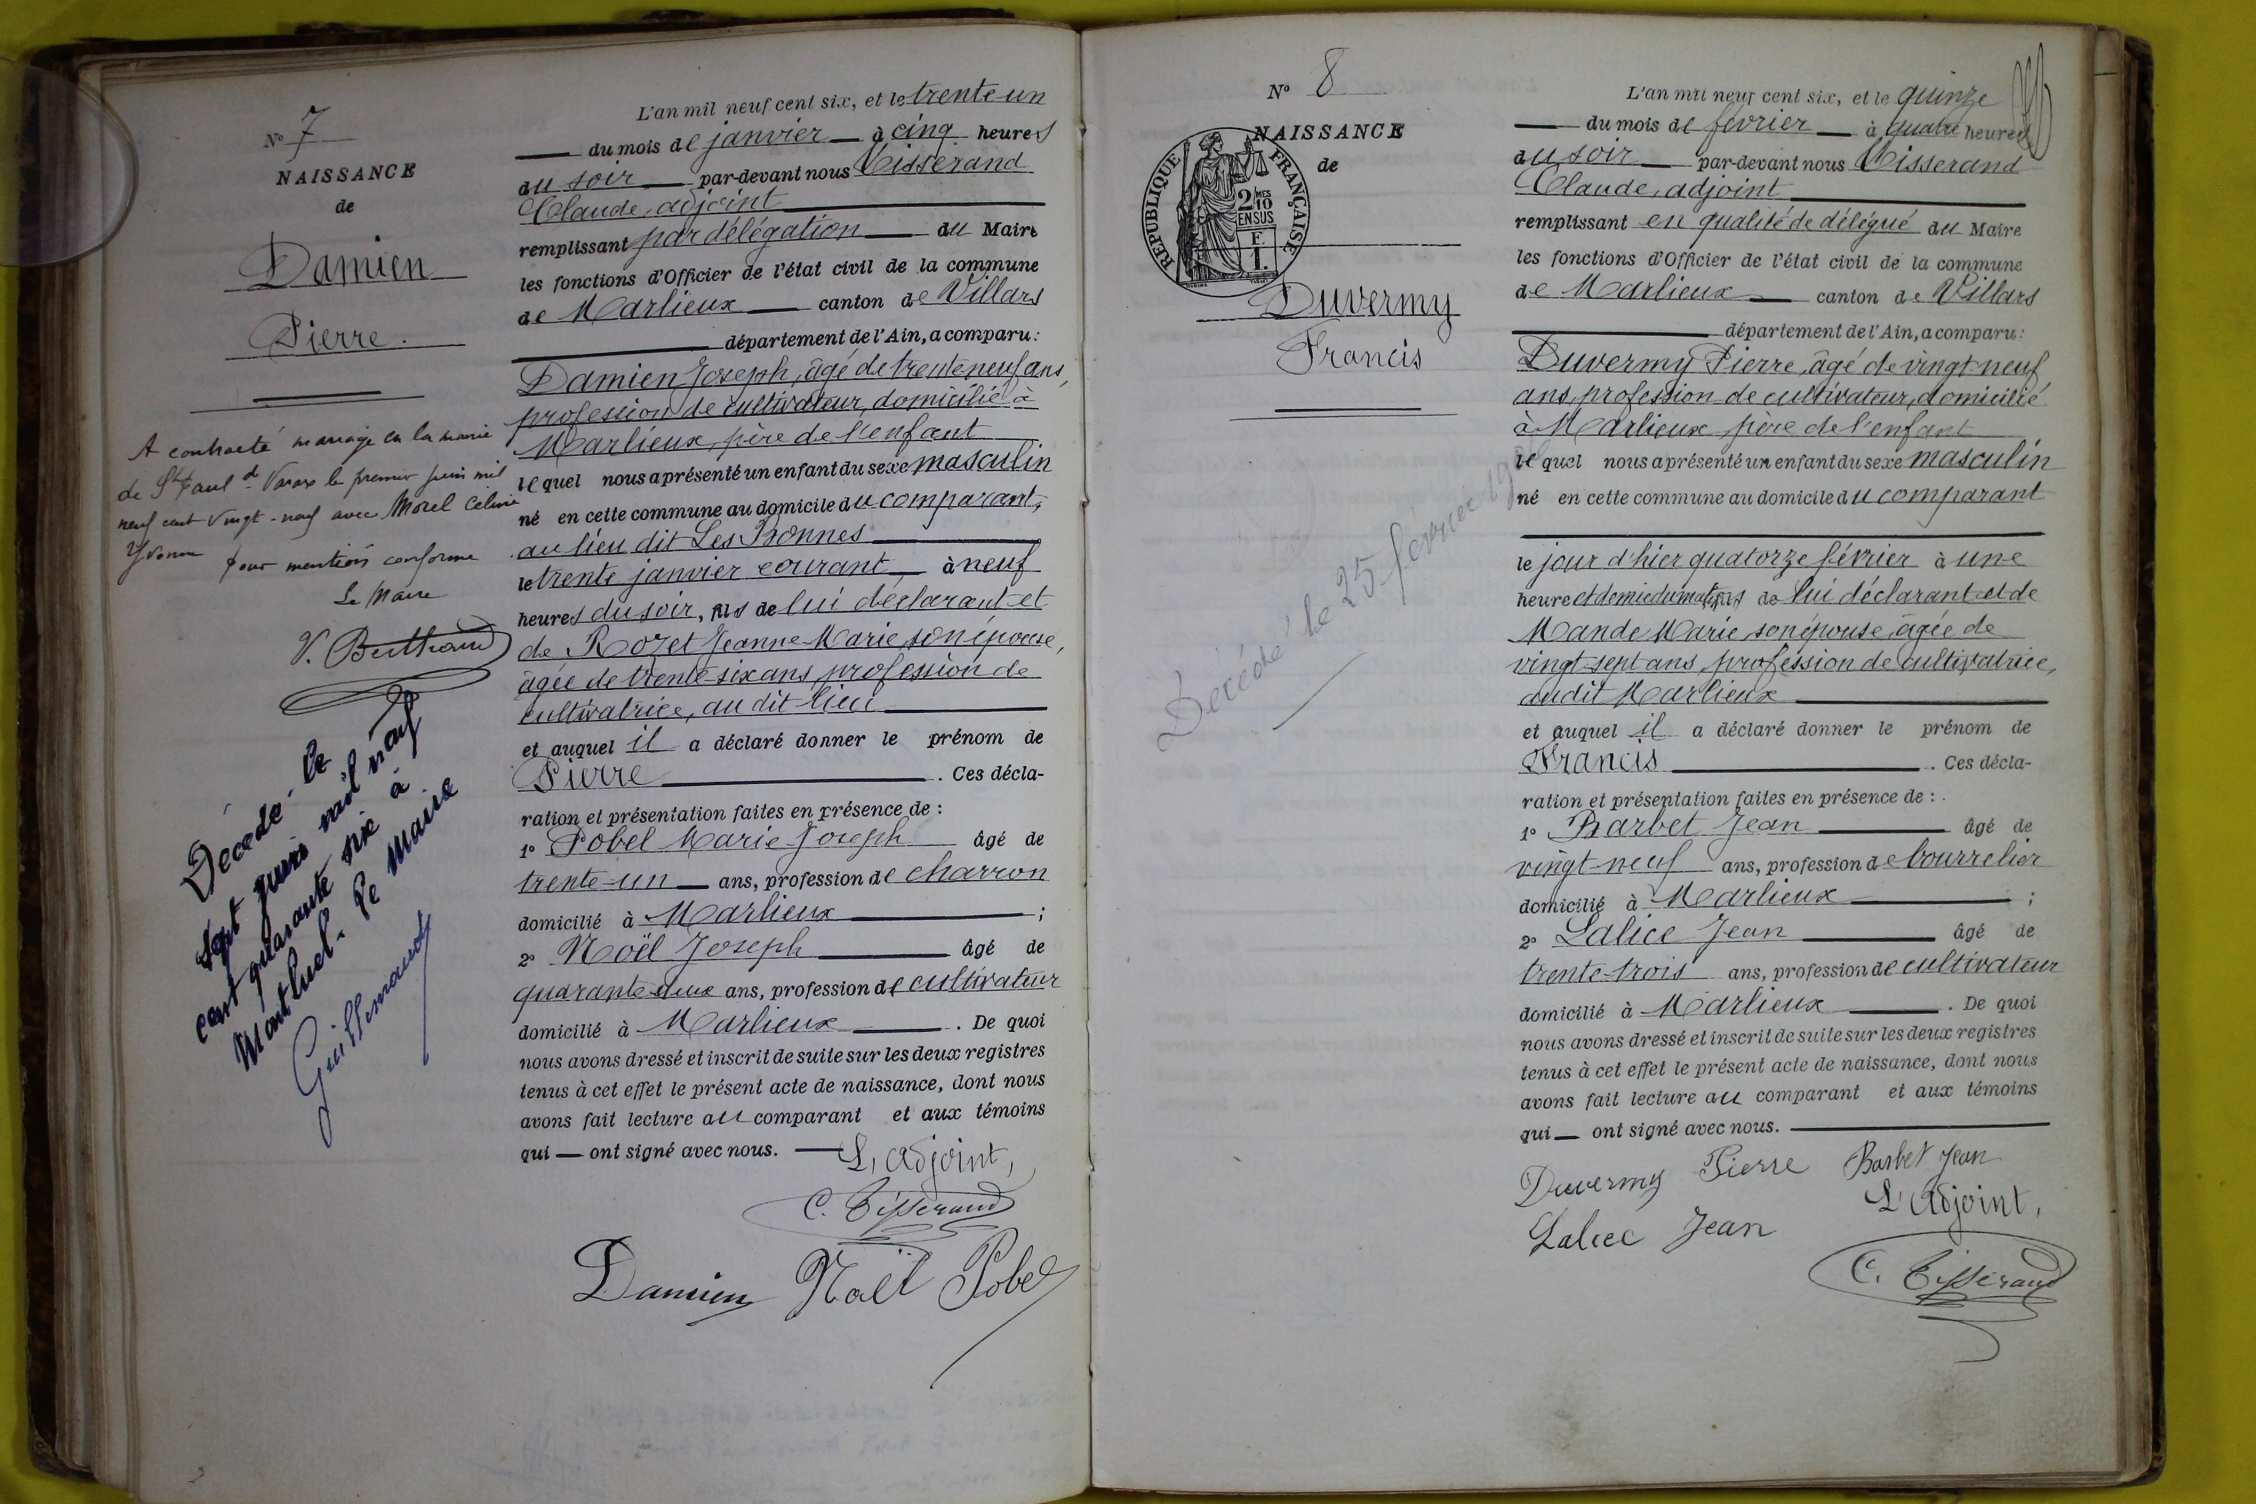 N° 7
NAISSANCE
de
Damien
Pierre.
A contracté mariage en la mairie
de St Paul de Varax le premier juin mil
neuf cent vingt-neuf avec Morel Celine
Yvonne pour mention conforme
Le Maire
V. Berthaud
Décédé le
sept juin mil neuf
cent quarante six à
Montluel. Le Maire
Guillemaud
L'an mil neuf cent six, et le trente-un
du mois de janvier à cinq heures
du soir par-devant nous Tisserand
Claude, adjoint
remplissant par délégation du Maire
les fonctions d'Officier de l'état civil de la commune
de Marlieux canton de Villars
département de l'Ain, a comparu:
Damien Joseph, âgé de trente neuf ans,
profession de cultivateur, domicilié à
Marlieux, père de l'enfant
lequel nous a présenté un enfant du sexe masculin
né en cette commune au domicile du comparant,
au lieu dit Les Bonnes
le trente janvier courant, à neuf
heures du soir, fils de lui déclarant et
de Rozet Jeanne-Marie, son épouse,
âgée de trente-six ans, profession de
cultivatrice, au dit lieu
et auquel il a déclaré donner le prénom de
Pierre. Ces décla-
ration et présentation faites en présence de :
1° Pobel Marie-Joseph âgé de
trente-un ans, profession de charron
domicilié à Marlieux ;
2° Noël Joseph âgé de
quarante-deux ans, profession de cultivateur
domicilié à Marlieux. De quoi
nous avons dressé et inscrit de suite sur les deux registres
tenus à cet effet le présent acte de naissance, dont nous
avons fait lecture au comparant et aux témoins
qui ont signé avec nous. L'adjoint,
C. Tisserand
Damien Noël Pobel
N° 8
NAISSANCE
de
REPUBLIQUE FRANÇAISE
2/10 MES
EN SUS
F.
1.
Duvermy
Francis
Décédé le 25 février
L'an mil neuf cent six, et le quinze
du mois de février à quatre heures
du soir par-devant nous Tisserand
Claude, adjoint
remplissant en qualité de délégué du Maire
les fonctions d'Officier de l'état civil de la commune
de Marlieux canton de Villars
département de l'Ain, a comparu:
Duvermy Pierre, âgé de vingt-neuf
ans, profession de cultivateur, domicilié
à Marlieux père de l'enfant
lequel nous a présenté un enfant du sexe masculin
né en cette commune au domicile du comparant
le jour d'hier quatorze février à une
heure et demie du matin, fils de lui déclarant et de
Mande Marie, son épouse, âgée de
vingt-sept ans, profession de cultivatrice,
audit Marlieux
et auquel il a déclaré donner le prénom de
Francis. Ces décla-
ration et présentation faites en présence de :
1° Barbet Jean âgé de
vingt-neuf ans, profession de bourrelier
domicilié à Marlieux ;
2° Lalice Jean âgé de
trente-trois ans, profession de cultivateur
domicilié à Marlieux. De quoi
nous avons dressé et inscrit de suite sur les deux registres
tenus à cet effet le présent acte de naissance, dont nous
avons fait lecture au comparant et aux témoins
qui ont signé avec nous.
Duvermy Pierre Barbet Jean
L'adjoint,
Lalice Jean
C. Tisserand